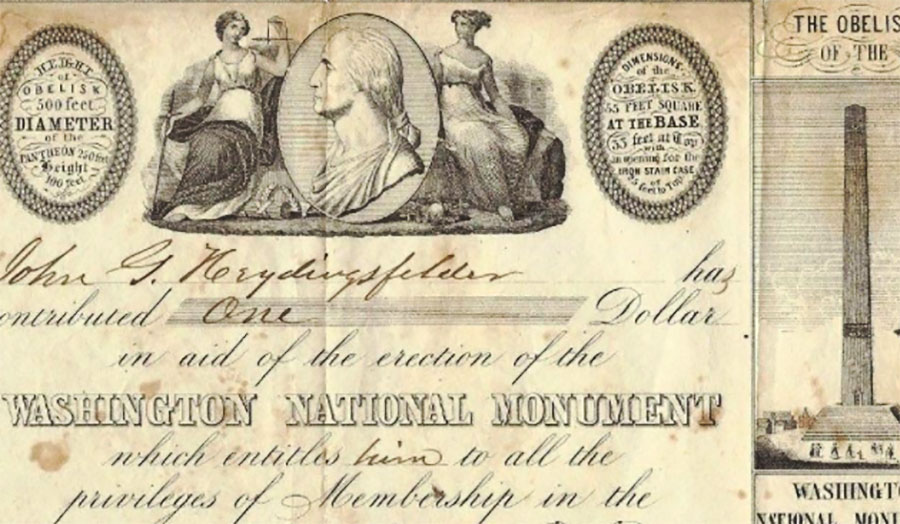 HEIGHT
of
OBELISK
500 feet
DIAMETER
of the
PANTHEON 250 feet
Height
100 feet
DIMENSIONS
of the
OBELISK.
55 FEET SQUARE
AT THE BASE
33 feet at Top
with
an opening for the
IRON STAIR CASE
of
25 feet to Top
John G. Heydingsfelder has
ontributed One Dollar
in aid of the erection of the
WASHINGTON NATIONAL MONUMENT
which entitles him to all the
privileges of Membership in the
THE OBELIS
OF THE
WASHINGTO
NATIONAL MONU